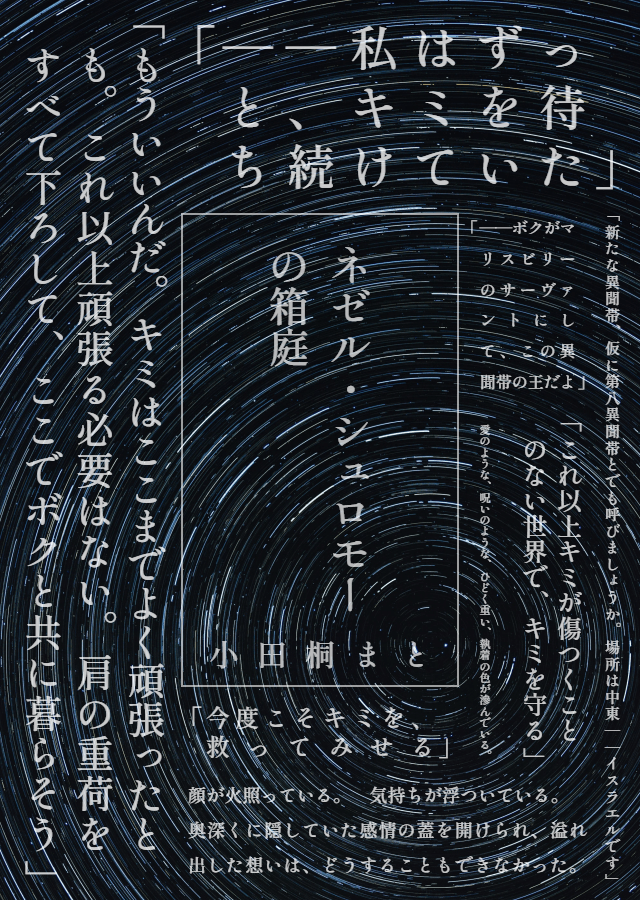 「――私はずっ
と、キミを待
ち続けていた」
「新たな異聞帯、仮に第八異聞帯とでも呼びましょうか。場所は中東――イスラエルです」
「――ボクがマ
リスビリー
のサーヴァ
ントにし
て、この異
聞帯の王だよ」
「これ以上キミが傷つくこと
のない世界で、キミを守る」
愛のような、呪いのような、ひどく重い、執着の色が滲んでいる。
ネゼル・シュロモー
の箱庭
小田桐まと
「今度こそキミを、
救ってみせる」
顔が火照っている。　気持ちが浮ついている。
奥深くに隠していた感情の蓋を開けられ、溢れ
出した想いは、どうすることもできなかった。
「もういいんだ。キミはここまでよく頑張ったと
も。これ以上頑張る必要はない。肩の重荷を
すべて下ろして、ここでボクと共に暮らそう」